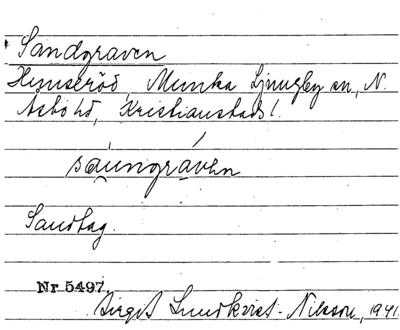 Sandgraven
Munka Ljungby sn, N.
Åsbo hd, Kristianstads l.
Sandtag.
Nr 5497.
Birgit Lundkvist-Nilsson, 1941